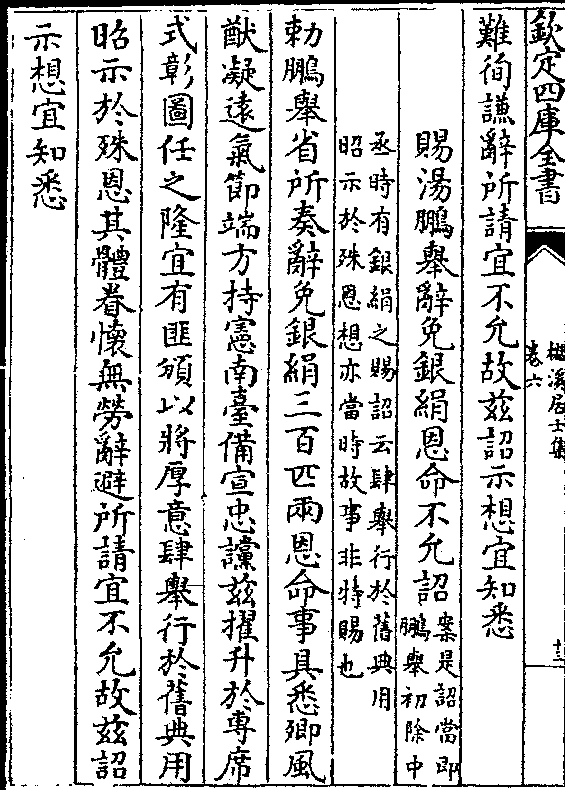 欽定四庫全書
卷六
難徇謙辭所請宜不允故兹詔示想宜知悉
賜湯鵬舉辭免銀絹恩命不允詔
案是詔當即
鵬舉初除中
丞時有銀絹之賜詔云肆舉行於舊典用
昭示於殊恩想亦當時故事非特賜也
勅鵬舉省所奏辭免銀絹三百匹兩恩命事具悉卿風
猷凝遠氣節端方持憲南臺備宣忠讜兹擢升於專席
式彰圖任之隆宜有匪頒以將厚意肆舉行於舊典用
昭示於殊恩其體眷懷無勞辭避所請宜不允故兹詔
示想宜知悉